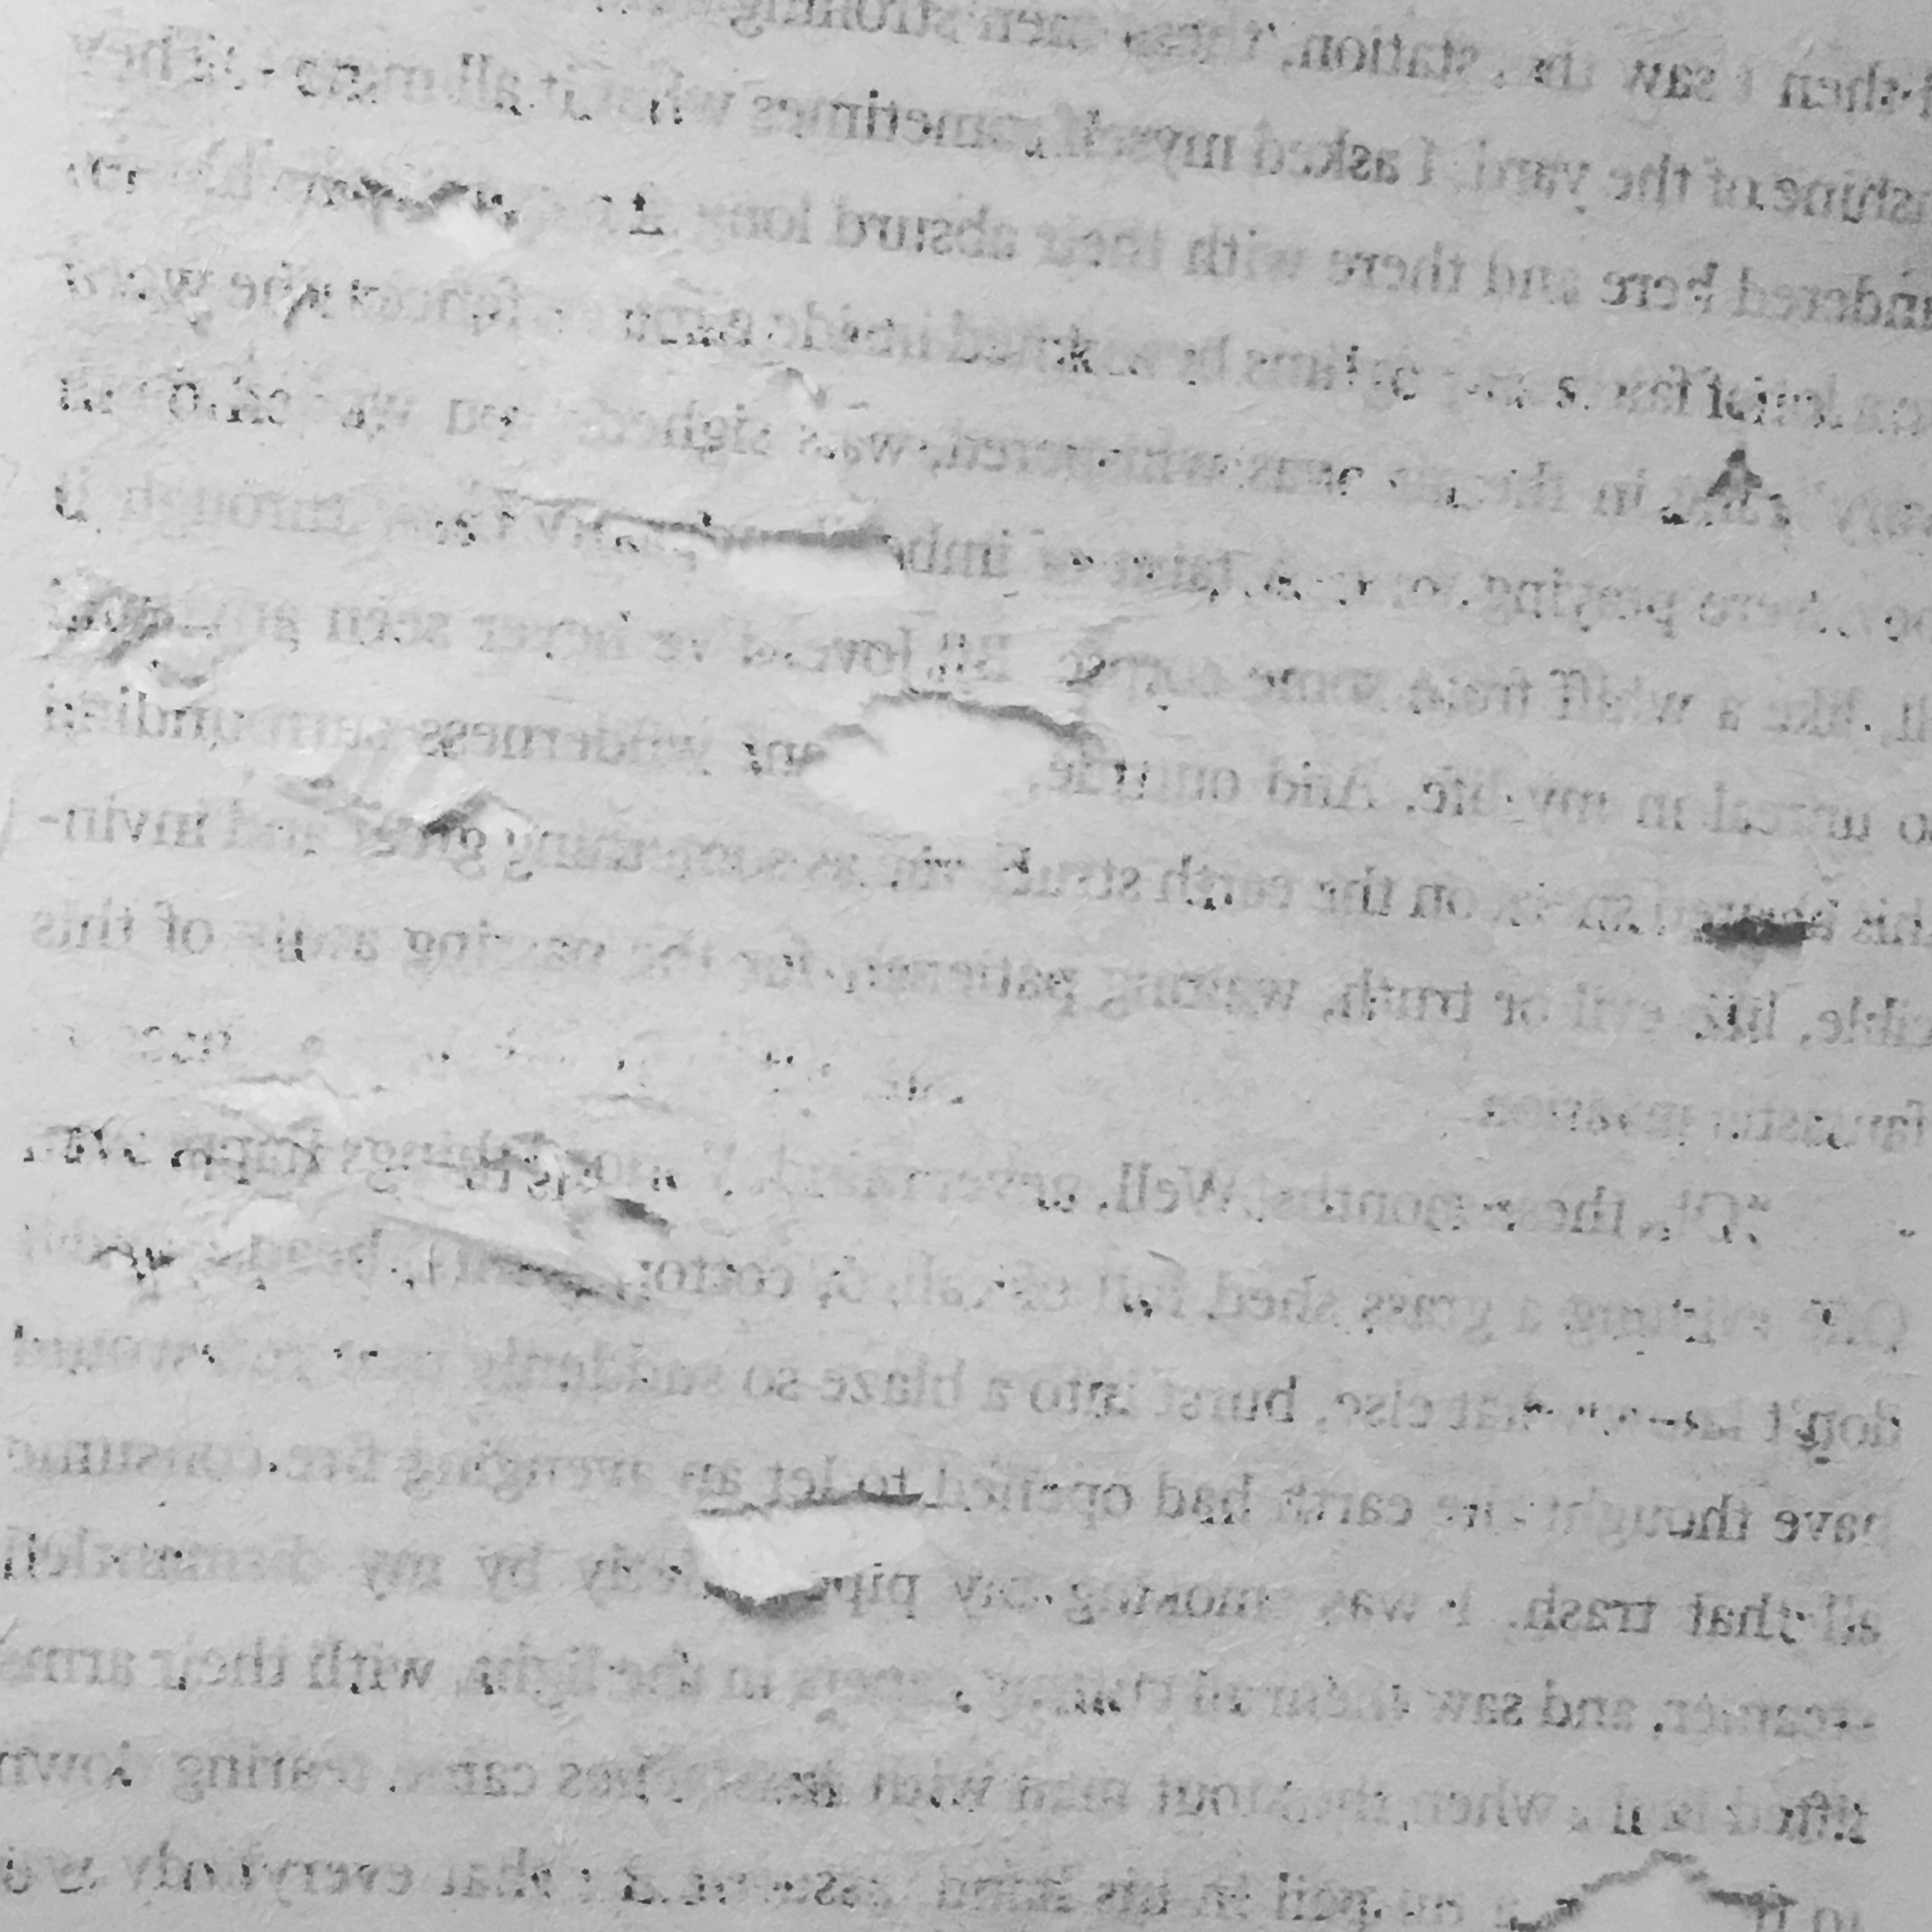 then I saw this station, these men strolling
shine of the yard. I asked myself sometimes what it all meant. They
here and there with their absurd long
inside a rotten fence. The word
in the air, was whispered, was sighed. You
were praying to it. A taint of through it
all, like a whiff from some corpse. By Jove! I've never seen anything
so unreal in my life. And outside, wilderness surrounding
this cleared speck on the earth struck me as something great and invin-
cible, like evil or truth, waiting patiently for the passing away of this
fantastic invasion.
“Oh, these months! Well, never mind. things happened.
One evening a grass shed full of calico, cotton
don't know what else, burst into a blaze so suddenly that you would
have thought the earth had opened to let an avenging fire consume
all that trash. I was smoking my pipe by my dismantled
steamer, and saw them all cutting capers in the light, with their arms
lifted high, when the stout man with moustaches came tearing down
to a pail in his hand, assured me that everybody was